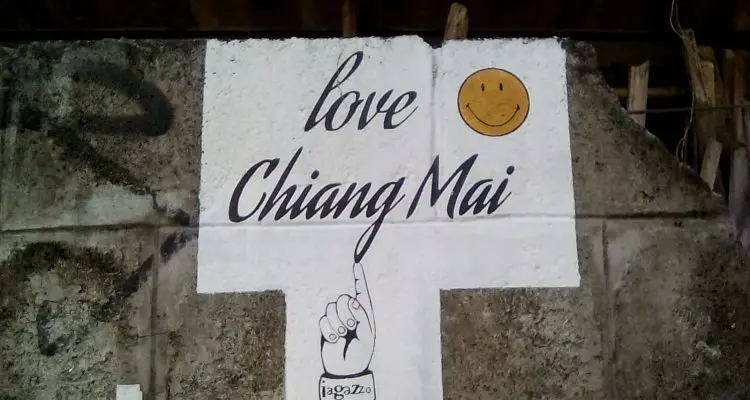 love
Chiang Mai
jagazzo